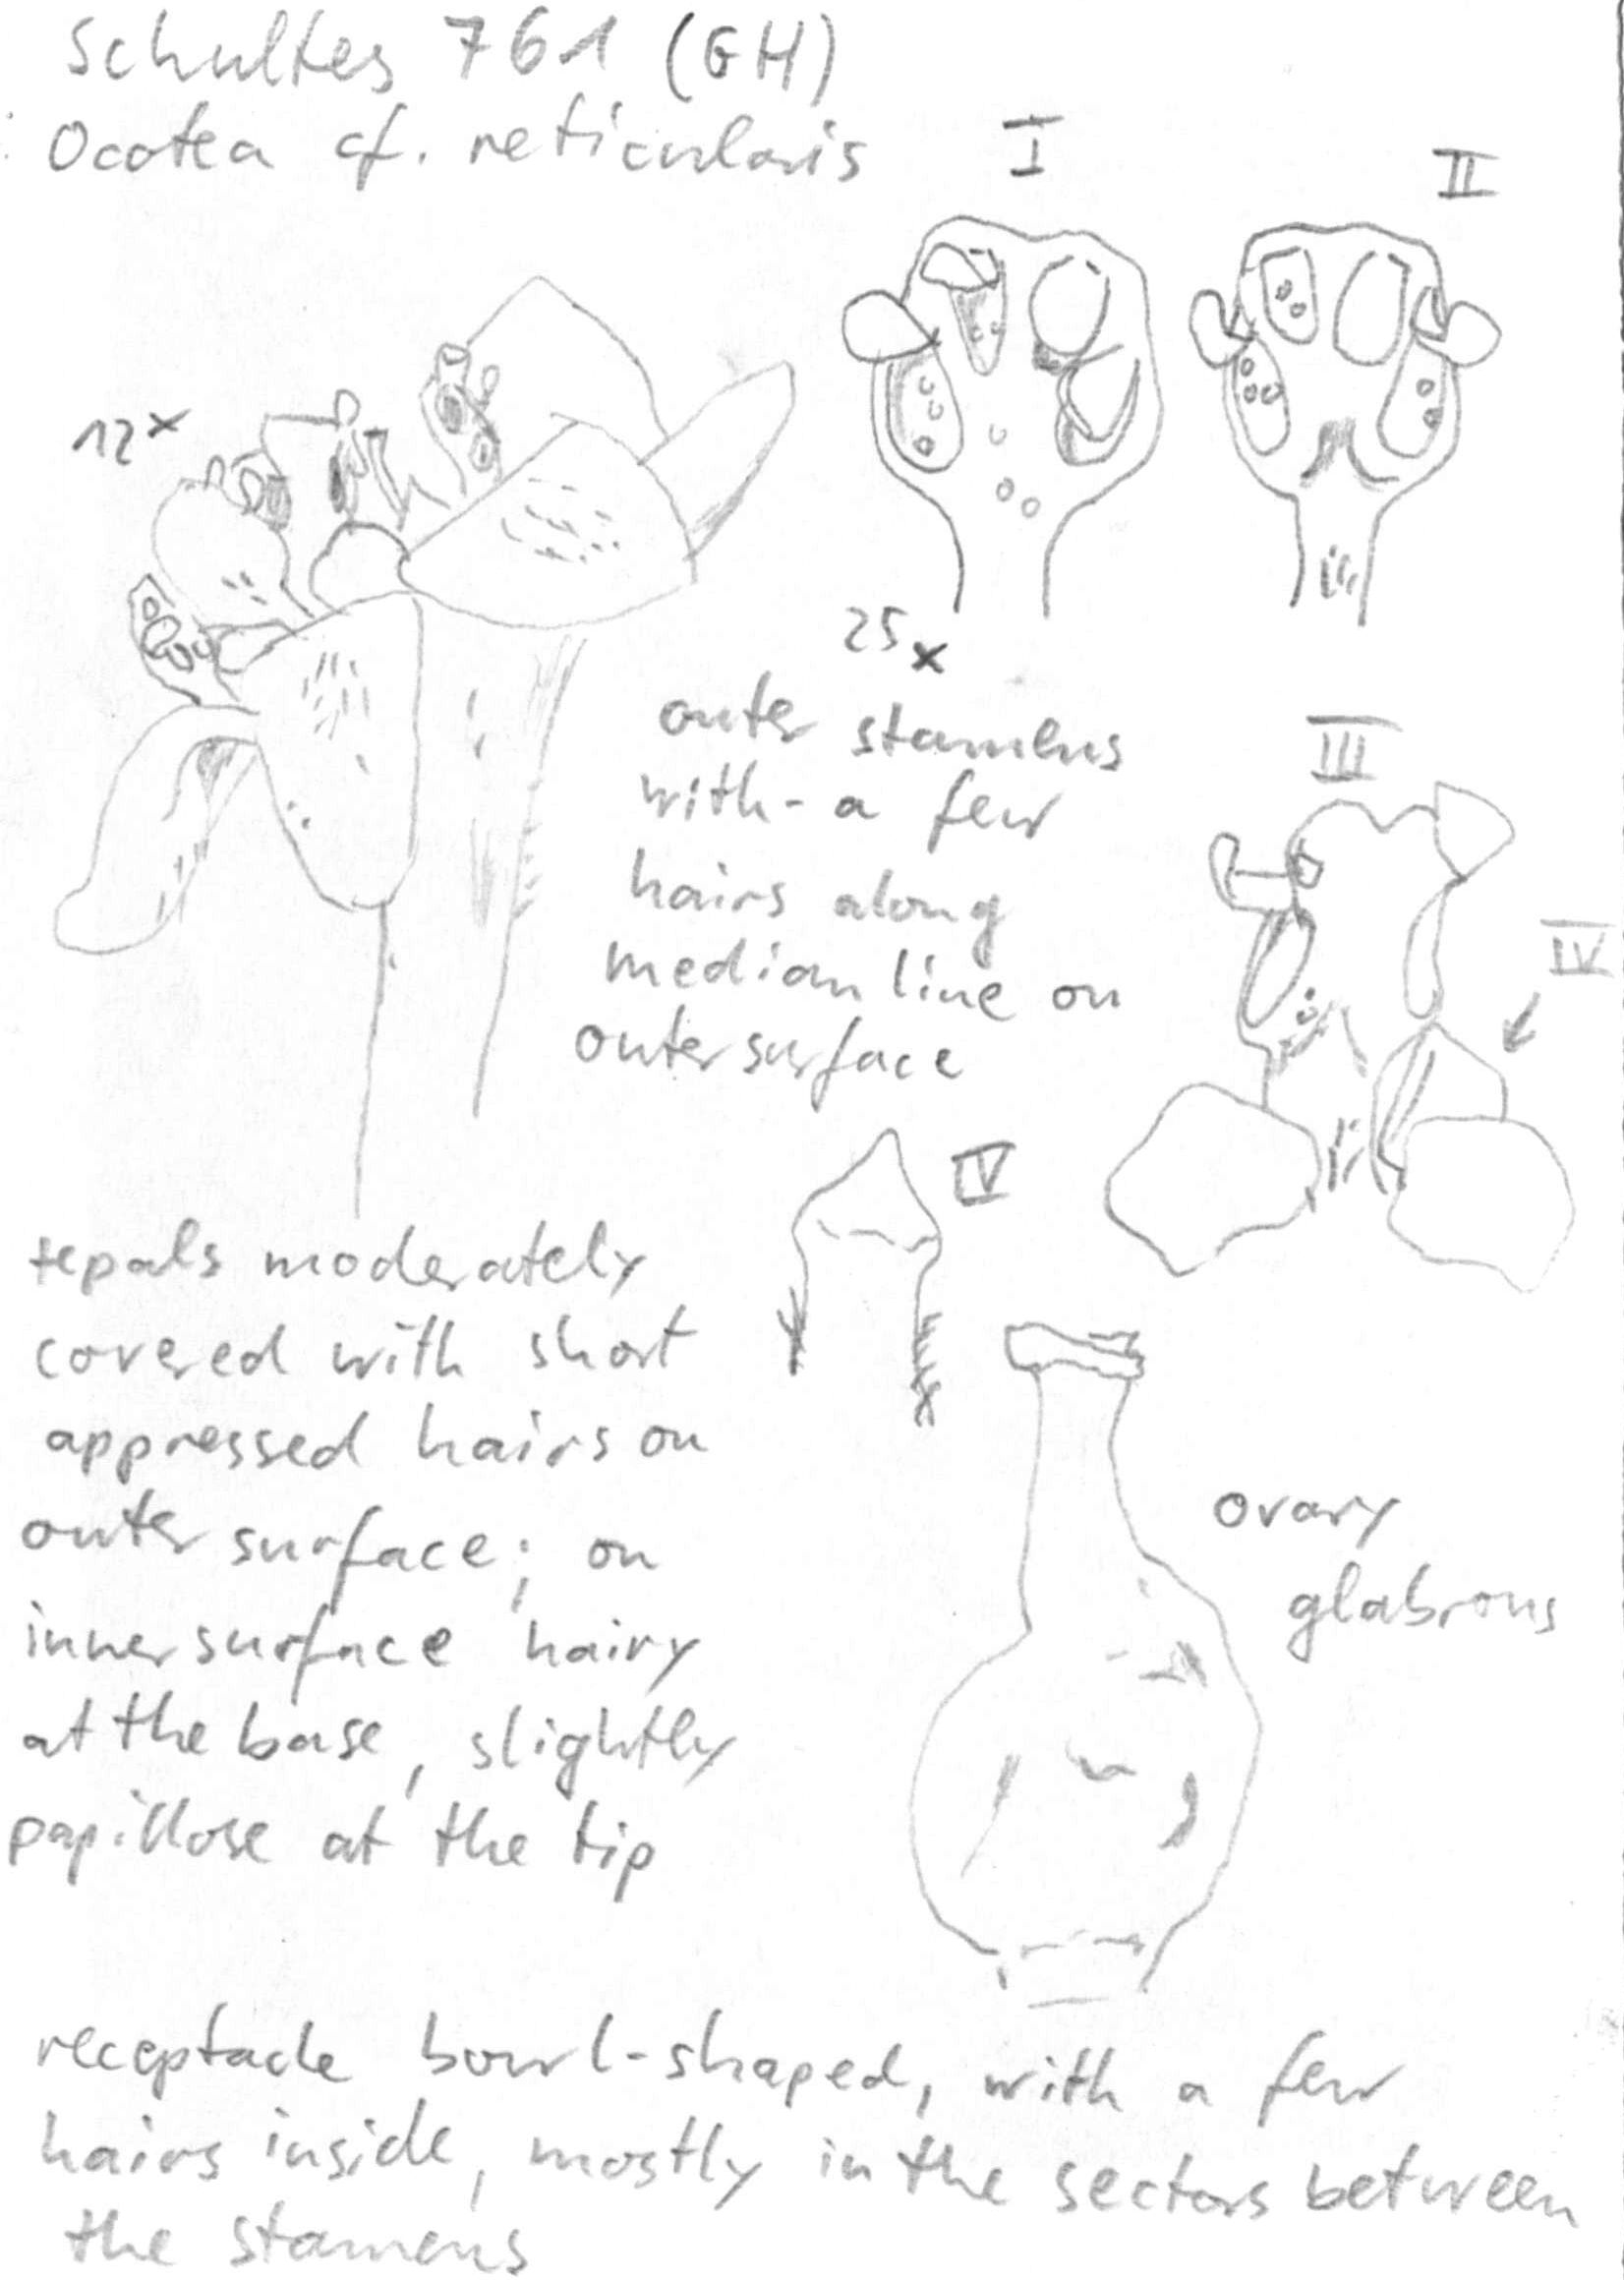 Schultes 761 (GH)
Ocotea cf. reticularis
I
II
12x
25x
outer stamens
with a few
hairs along
median line on
outer surface
III
IV
IV
tepals moderately
covered with short
appressed hairs on
outer surface; on
inner surface hairy
at the base, slightly
papillose at the tip
ovary
glabrous
receptacle bowl-shaped, with a few
hairs inside, mostly in the sectors between
the stamens